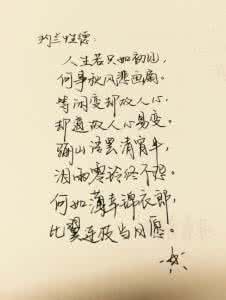 纳兰性德:
人生若只如初见,
何事秋风悲画扇。
等闲变却故人心,
却道故人心易变。
骊山语罢清宵半,
泪雨零铃终不怨。
何如薄幸锦衣郎,
比翼连枝当日愿。